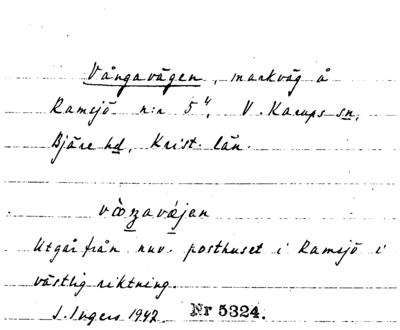 Vångavägen, markväg å
Ramsjö n:r 5⁴, V. Karups sn,
Bjäre hd, Krist. län.
Utgår från nuv. posthuset i Ramsjö i
västlig riktning.
I. Ingers 1942. Nr 5324.